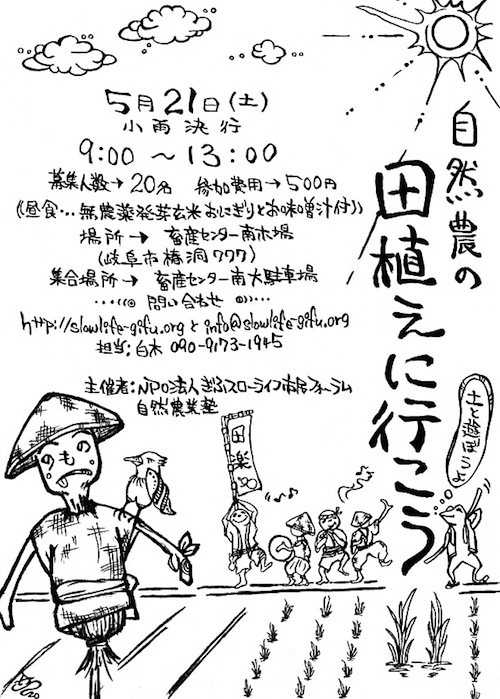 自然農の
田植えに行こう
5月21日(土)
小雨決行
9:00 〜 13:00
募集人数→20名 参加費用→500円
《昼食…無農薬発芽玄米おにぎりとお味噌汁付》
場所 → 畜産センター南ホ場
(岐阜市椿洞777)
集合場所 → 畜産センター南大駐車場
問い合わせ
http://slowlife-gifu.org と info@slowlife-gifu.org
担当:白木 090-9173-1945
主催者:NPO法人ぎふスローライフ市民フォーラム
自然農業塾
土と遊ぼうよ
田楽